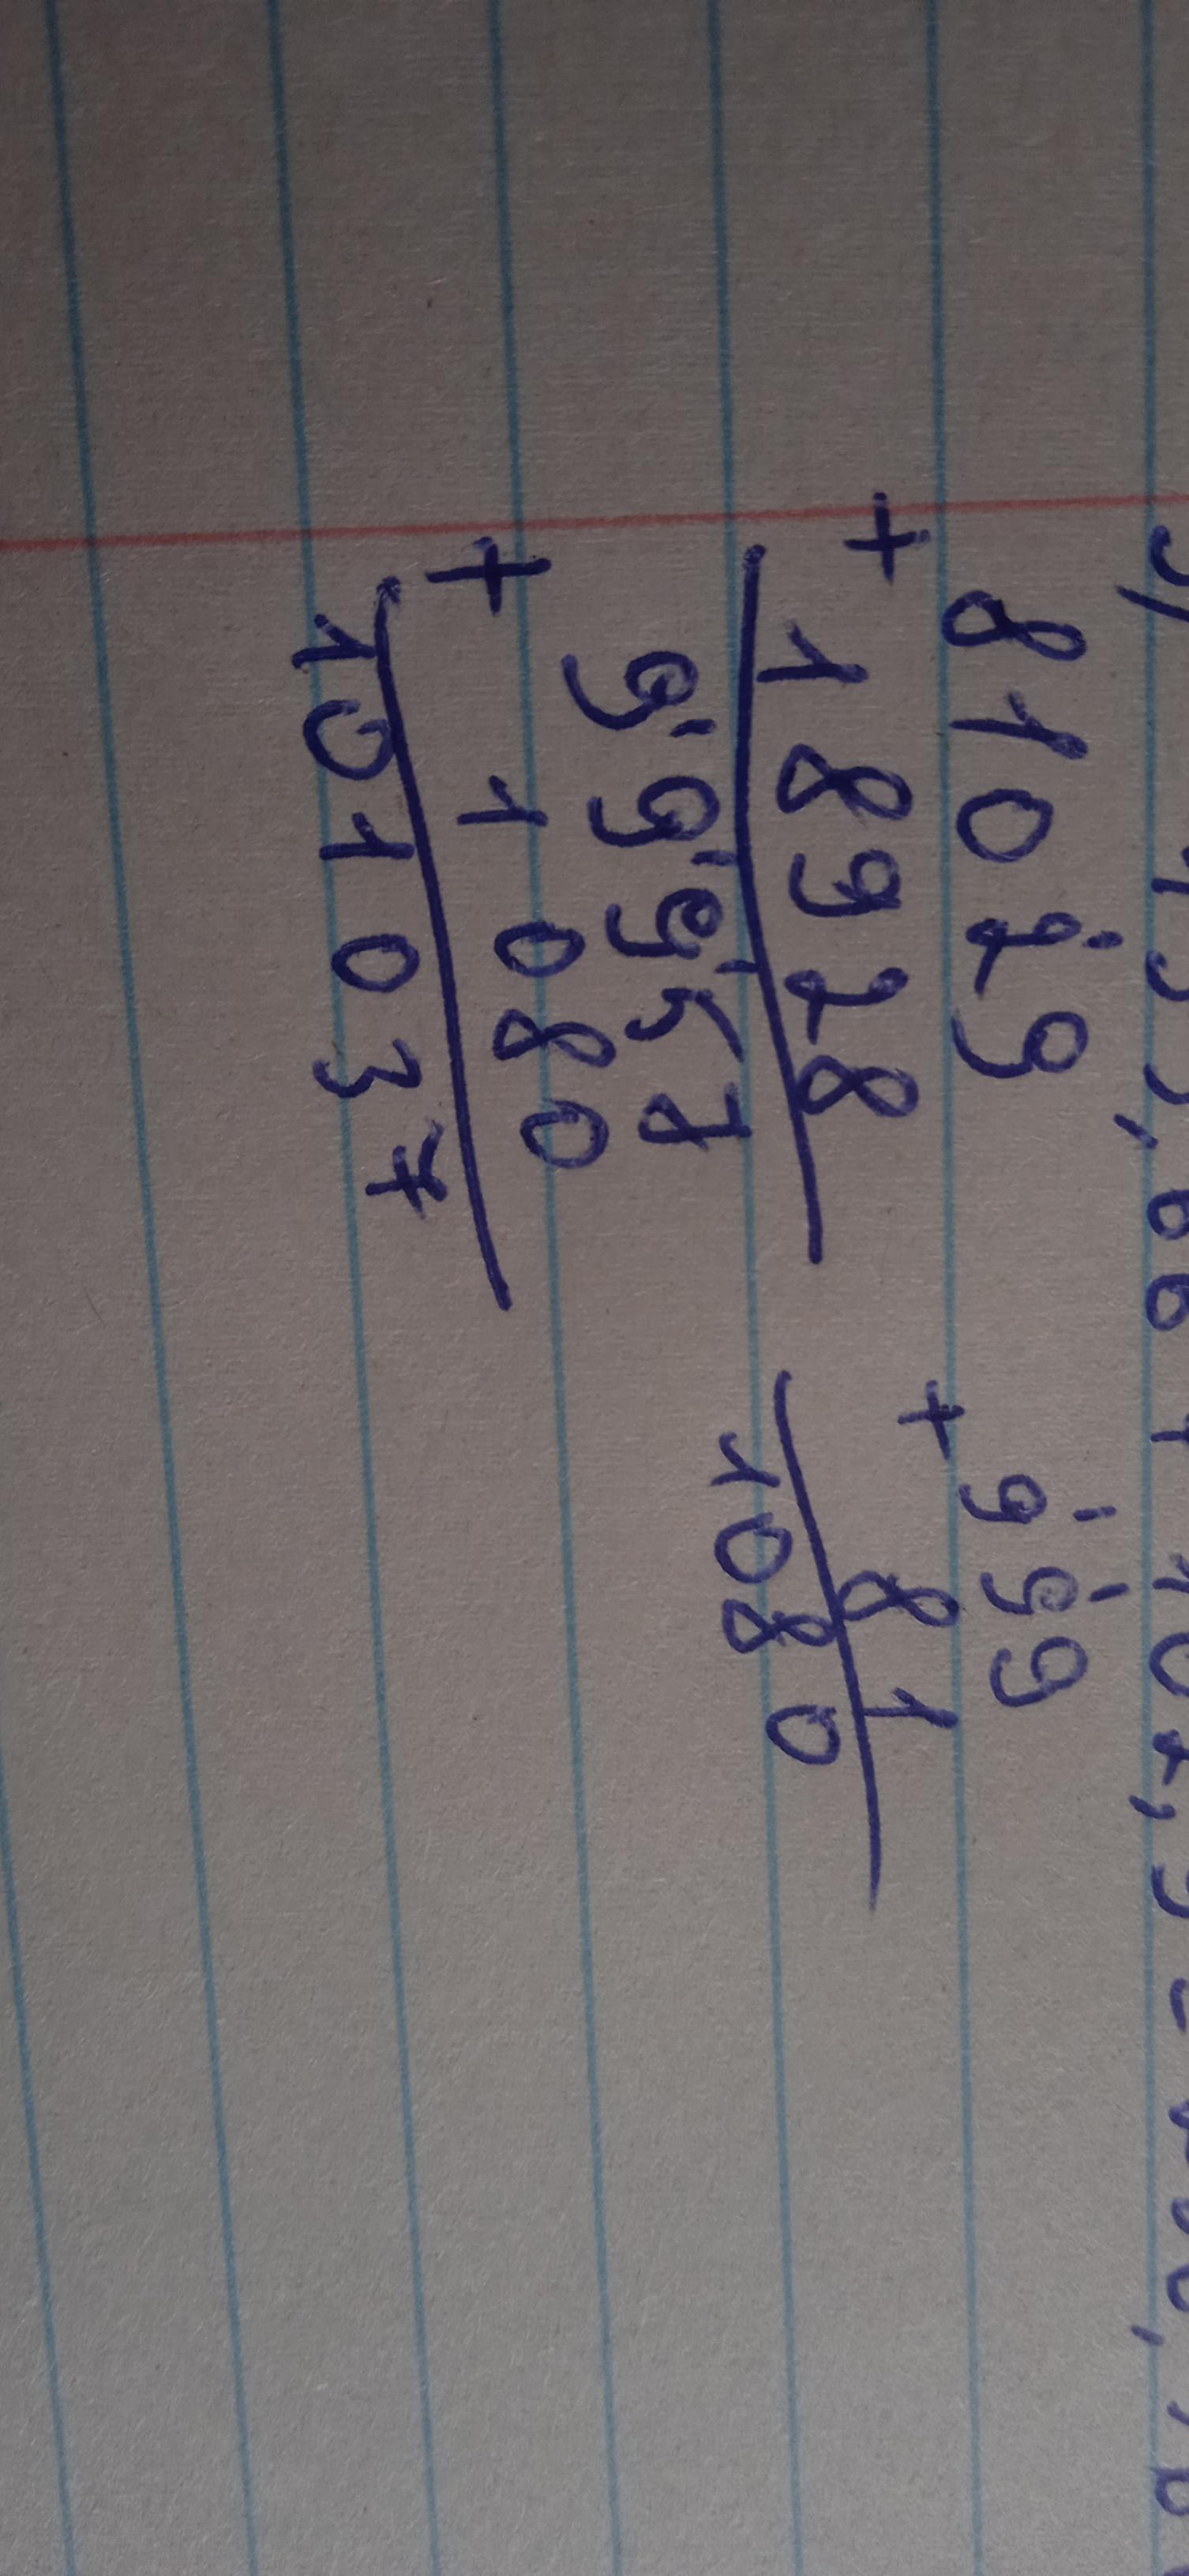 81029
+ 18928
99957
+ 1080
101037
999
+ 81
1080